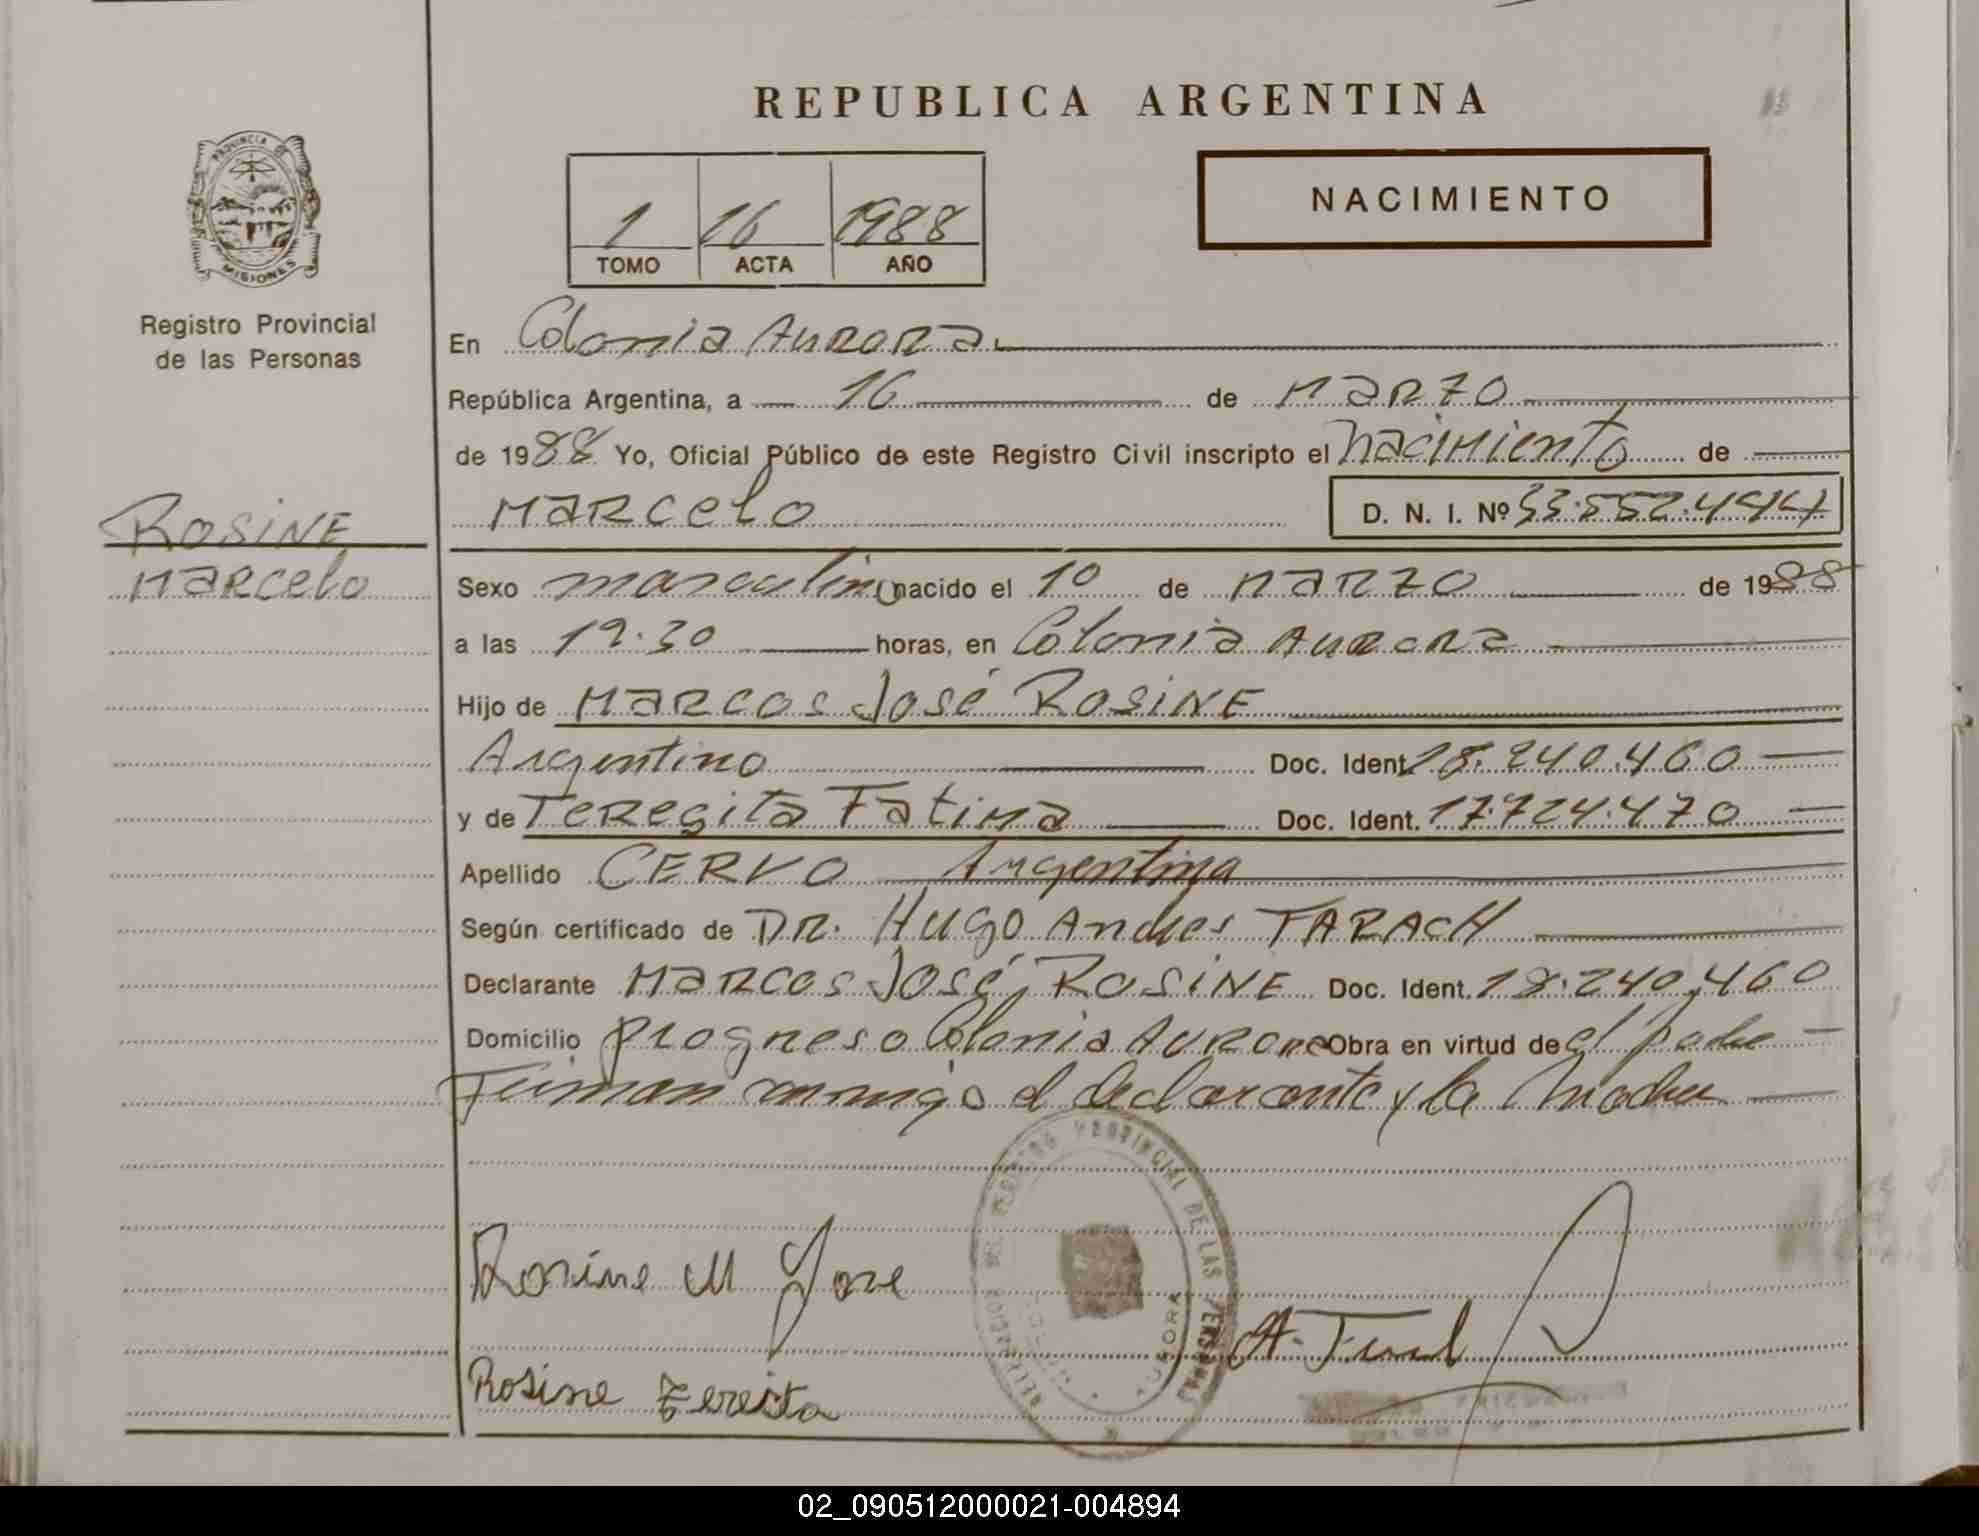 REPUBLICA ARGENTINA
PROVINCIA DE
MISIONES
Registro Provincial
de las Personas
1 16 1988
TOMO ACTA AÑO
NACIMIENTO
En Colonia Aurora
República Argentina, a 16 de Marzo
de 1988 Yo, Oficial Público de este Registro Civil inscripto el Nacimiento de
Marcelo D. N. I. Nº 33.552.494
ROSINE
Marcelo
Sexo masculino nacido el 10 de Marzo de 1988
a las 19.30 horas, en Colonia Aurora
Hijo de Marcos José ROSINE
Argentino Doc. Ident. 18.240.460
y de Teresita Fatima Doc. Ident. 17.724.470
Apellido CERVO Argentina
Según certificado de DR. Hugo Andres TARACH
Declarante Marcos José ROSINE Doc. Ident. 18.240.460
Domicilio Progreso Colonia Aurora Obra en virtud de el padre
Firman conmigo el declarante y la Madre
Rosine M Jose
Rosine Teresita
REGISTRO PROVINCIAL DE LAS PERSONAS
AURORA
02_090512000021-004894